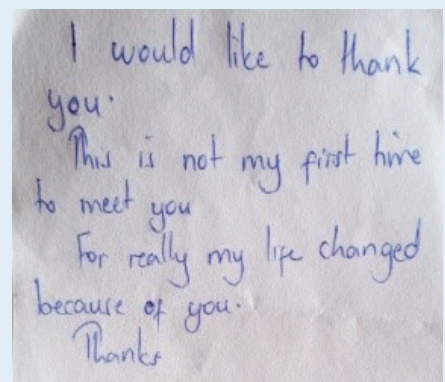 I would like to thank
you.
This is not my first time
to meet you
For really my life changed
because of you.
Thanks